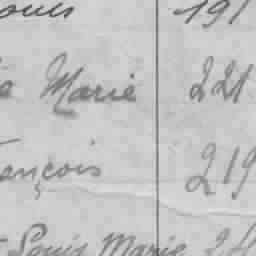 ouis 191
e Marie 221
ançois 219
t Louis Marie